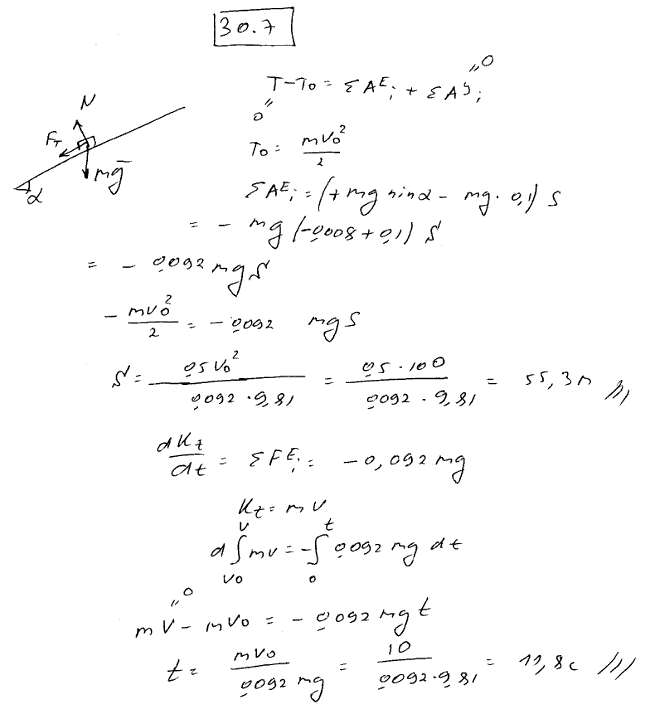 30.7
T-T₀ = ΣAᴱᵢ + ΣAᴶᵢ
"0
"0
N
Fт
mg̅
α
T₀ = mv₀²/2
ΣAᴱᵢ = (+mg sinα - mg · 0,1) S
= - mg (-0,008 + 0,1) S
= - 0,092 mg S
- mv₀²/2 = - 0,092 mg S
S = 0,5 v₀² / 0,092 · 9,81 = 0,5 · 100 / 0,092 · 9,81 = 55,3 м
dKₜ/dt = ΣFᴱᵢ = -0,092 mg
Kₜ = mv
d∫ᵥ₀ᵛ mv = -∫₀ᵗ 0,092 mg dt
"0
mV - mv₀ = - 0,092 mg t
t = mv₀ / 0,092 mg = 10 / 0,092 · 9,81 = 11,8 c